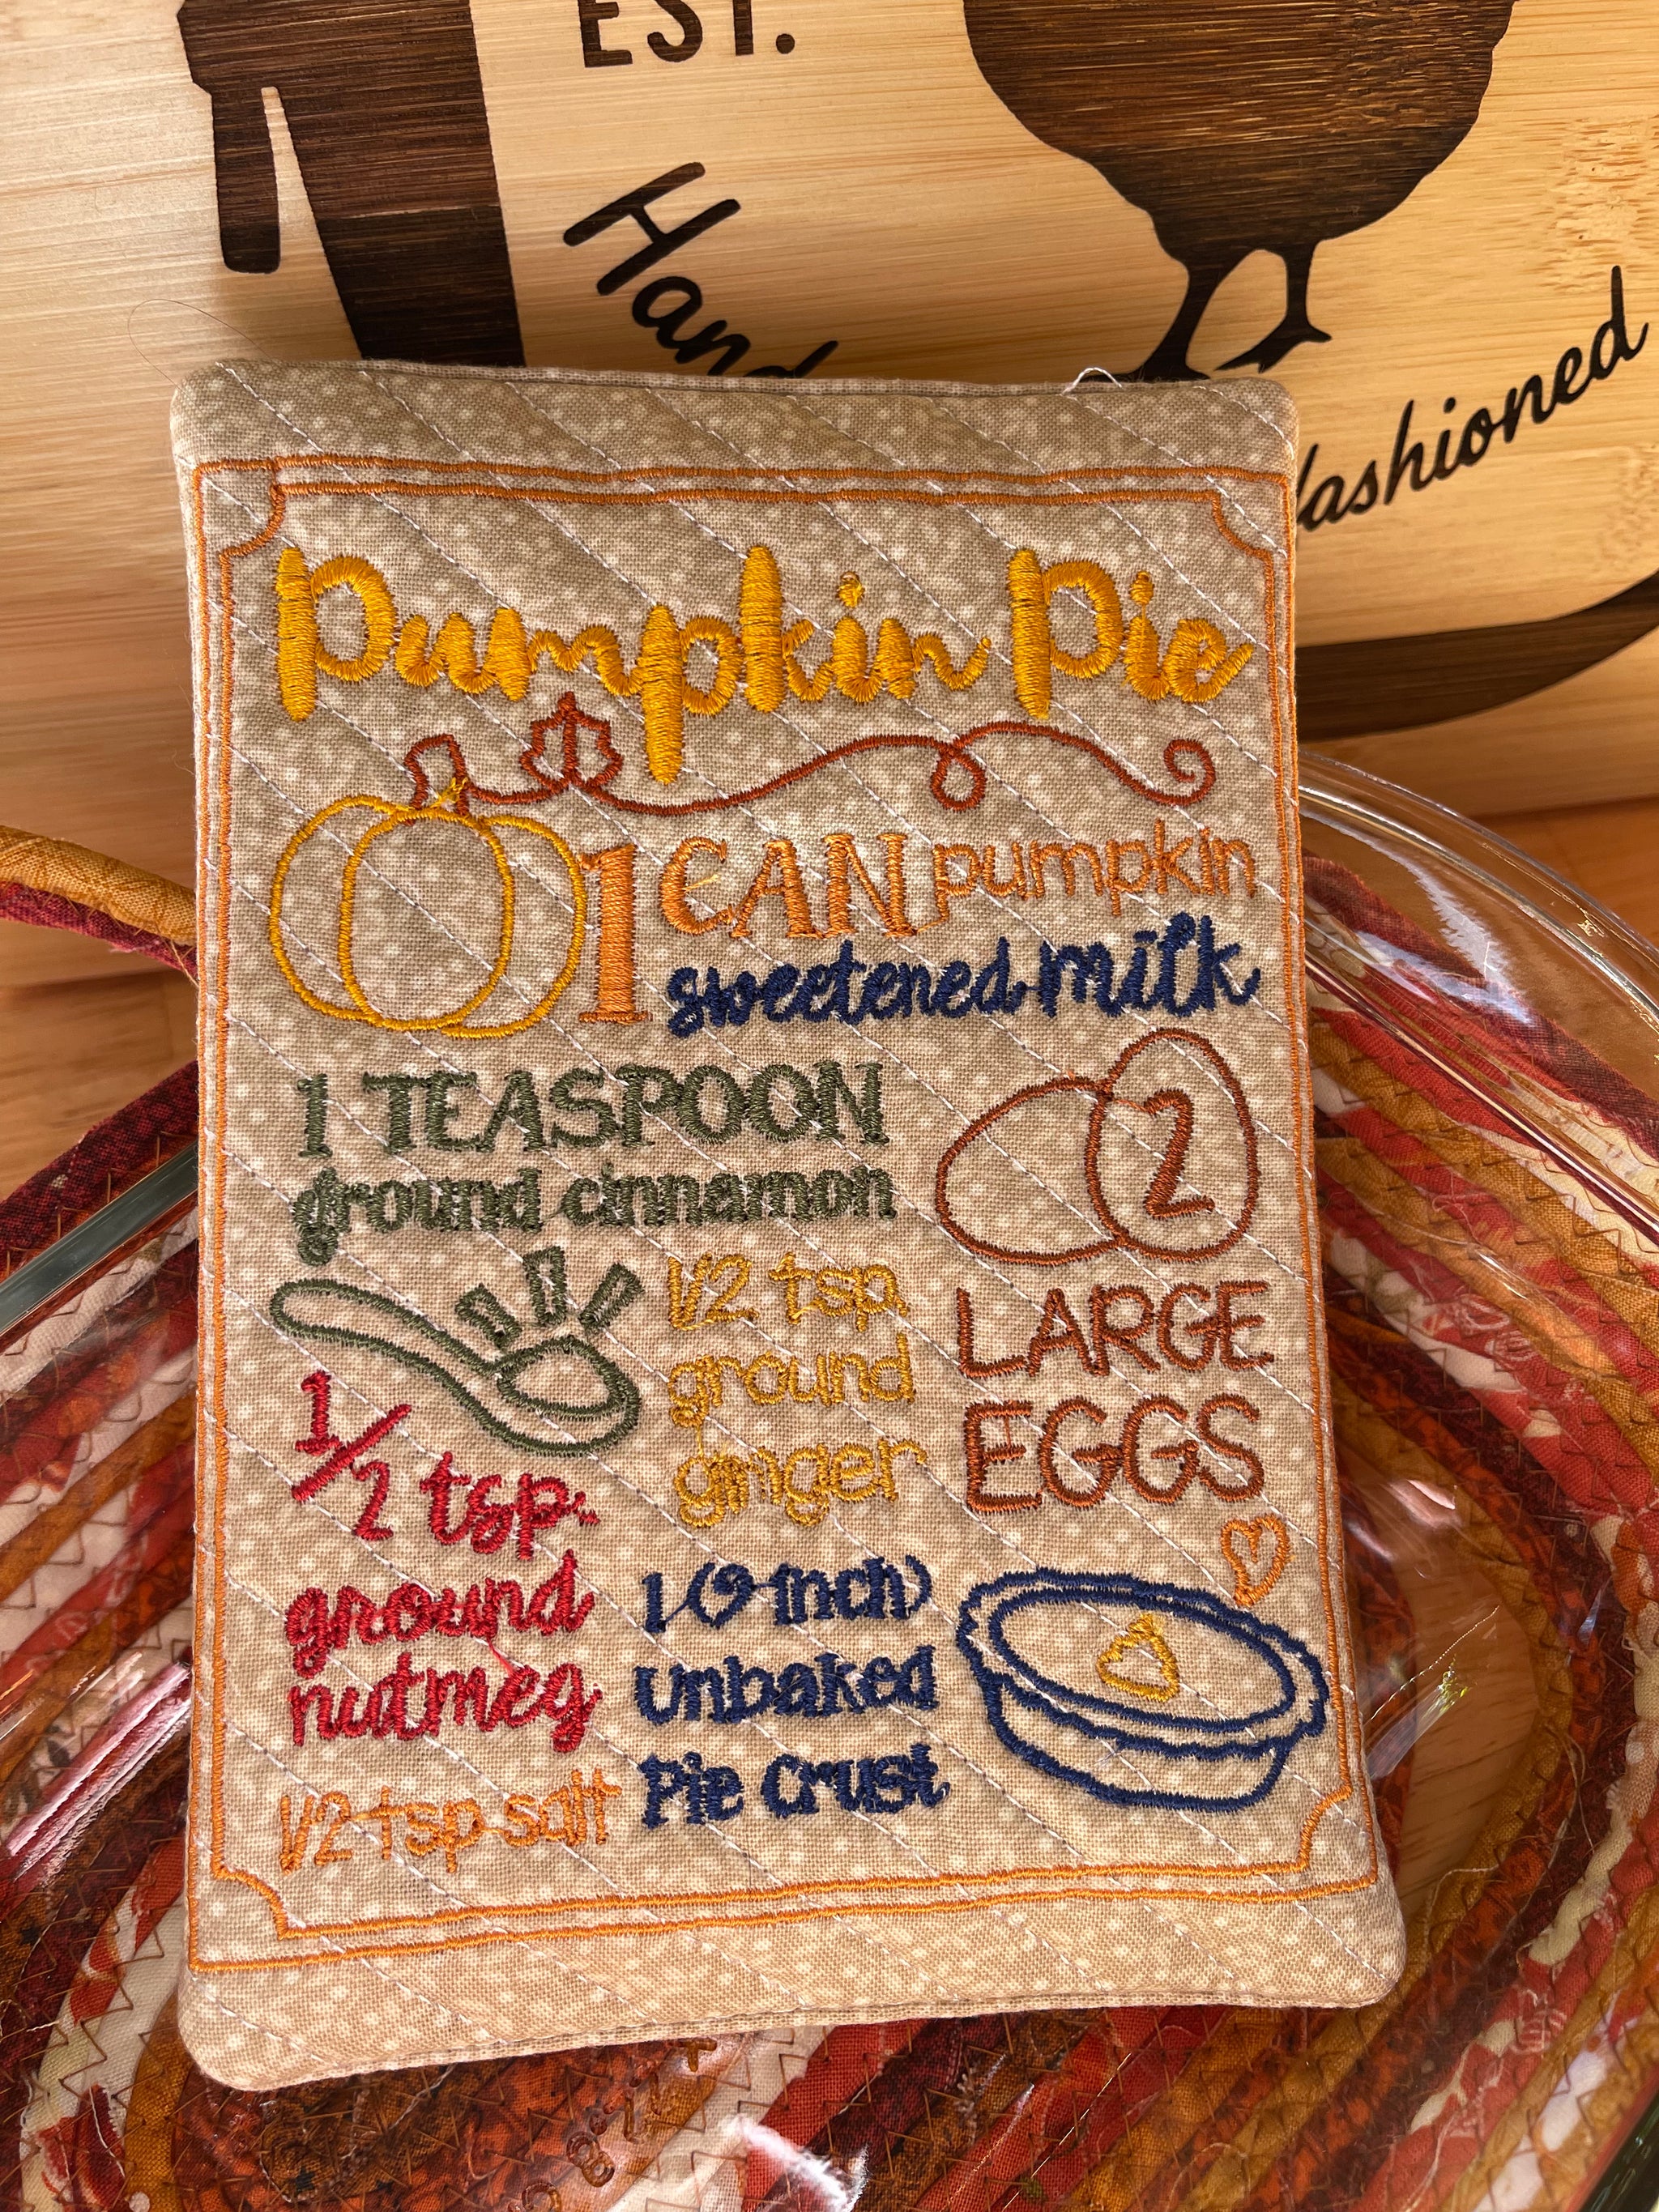 EST.
Hand
fashioned
Pumpkin Pie
1 CAN pumpkin
sweetened milk
1 TEASPOON
ground cinnamon
2
LARGE
EGGS
1/2 tsp.
ground
ginger
1/2 tsp.
ground
nutmeg
1 (9-inch)
unbaked
Pie Crust
1/2 tsp salt